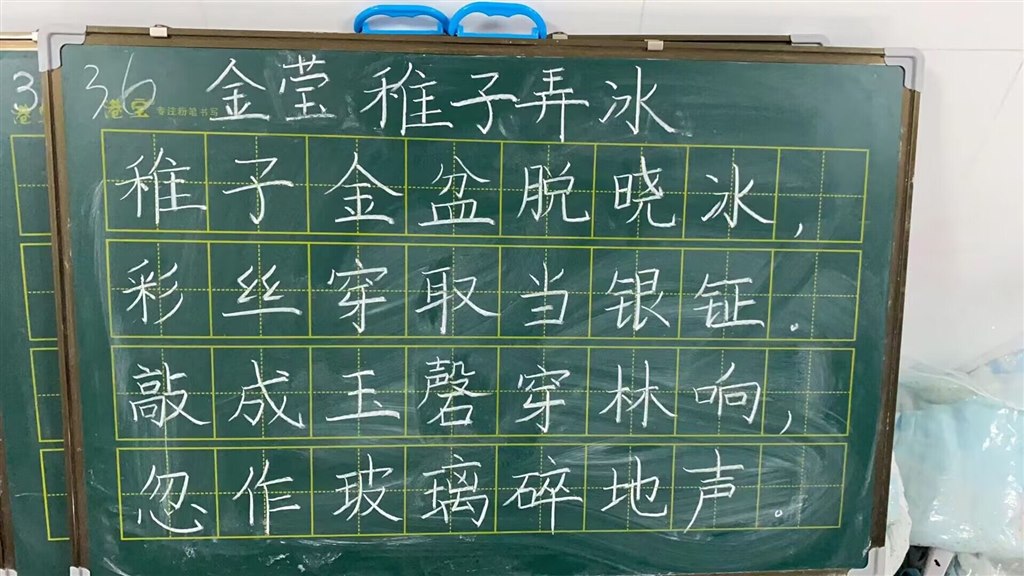 36 金莹 稚子弄冰
港宝 专注粉笔书写
稚子金盆脱晓冰，
彩丝穿取当银钲。
敲成玉磬穿林响，
忽作玻璃碎地声。
3